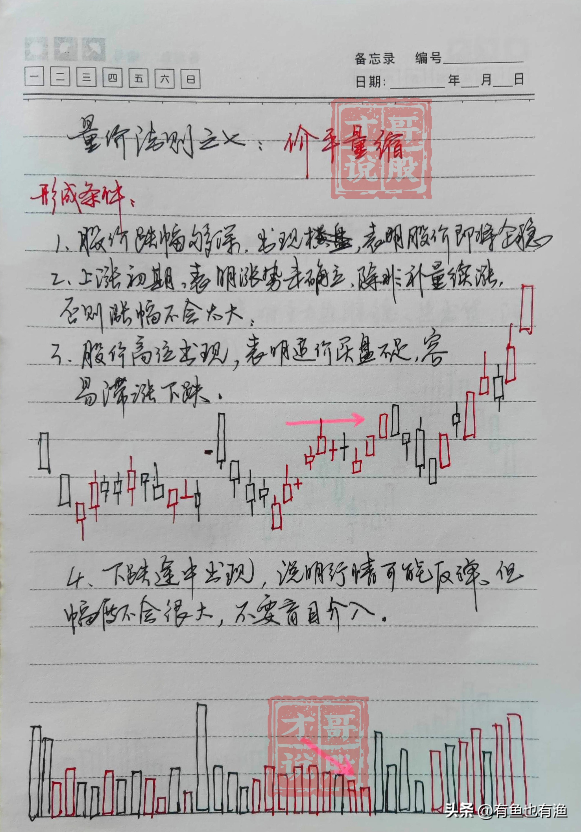 备忘录 编号
一 二 三 四 五 六 日
日期: 年 月 日
才哥
说股
量价法则之七：价平量缩
形成条件：
1、股价跌幅够深，出现横盘，表明股价即将企稳
2、上涨初期，表明涨势未确立，除非补量续涨，
否则涨幅不会太大；
3、股价高位出现，表明追价买盘不足，容
易滞涨下跌。
4、下跌途中出现，说明行情可能反弹、但
幅度不会很大，不要盲目介入。
才哥
说股
头条 @有鱼也有渔